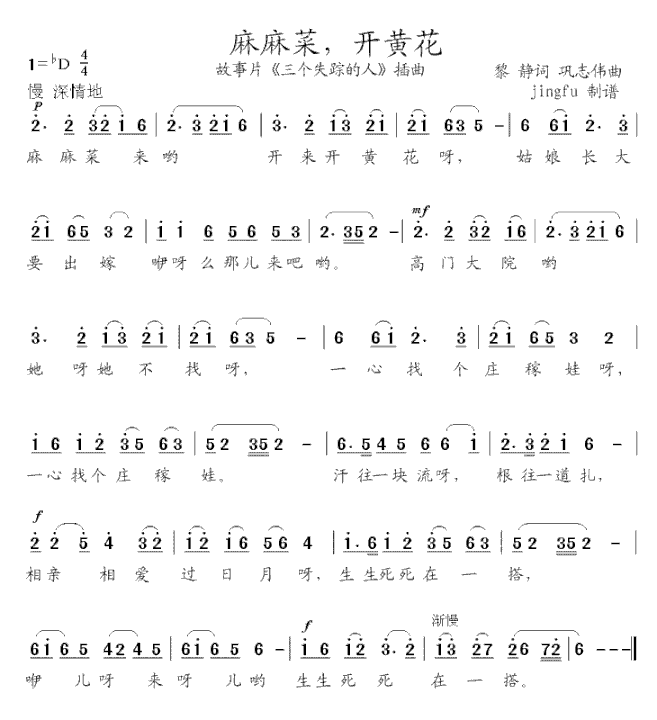 麻麻菜，开黄花
1=♭D 4/4
故事片《三个失踪的人》插曲
黎 静词 巩志伟曲
慢 深情地
jingfu 制谱
p
2· 2 3216 | 2·3 216 | 3· 2 13 21 | 21 635 - | 6 61 2· 3 |
麻 麻菜 来哟 开来开黄花呀，姑娘长大
mf
21 65 3 2 | 1 1 6 5 6 5 3 | 2·352 - | 2· 2 32 16 | 2·3 216 |
要出嫁 咿呀么那儿来吧哟。 高门大院 哟
3· 2 13 21 | 21 635 - | 6 61 2· 3 | 21 65 3 2 |
她 呀她不找呀， 一心找个庄稼娃呀，
16 12 35 63 | 52 352 - | 6·5 45 66 1 | 2·3 21 6 - |
一心找个庄稼 娃。 汗往一块流呀，根往一道扎，
f
2 2 5 4 32 | 12 16 56 4 | 1·6 12 35 63 | 52 352 - |
相亲 相爱过日月呀，生生死死在一搭，
f 渐慢
6165 4245 | 6165 6 - | 16 12 3·2 | 13 27 26 72 | 6 - - - ‖
咿儿呀来呀儿哟 生生死死 在一搭。